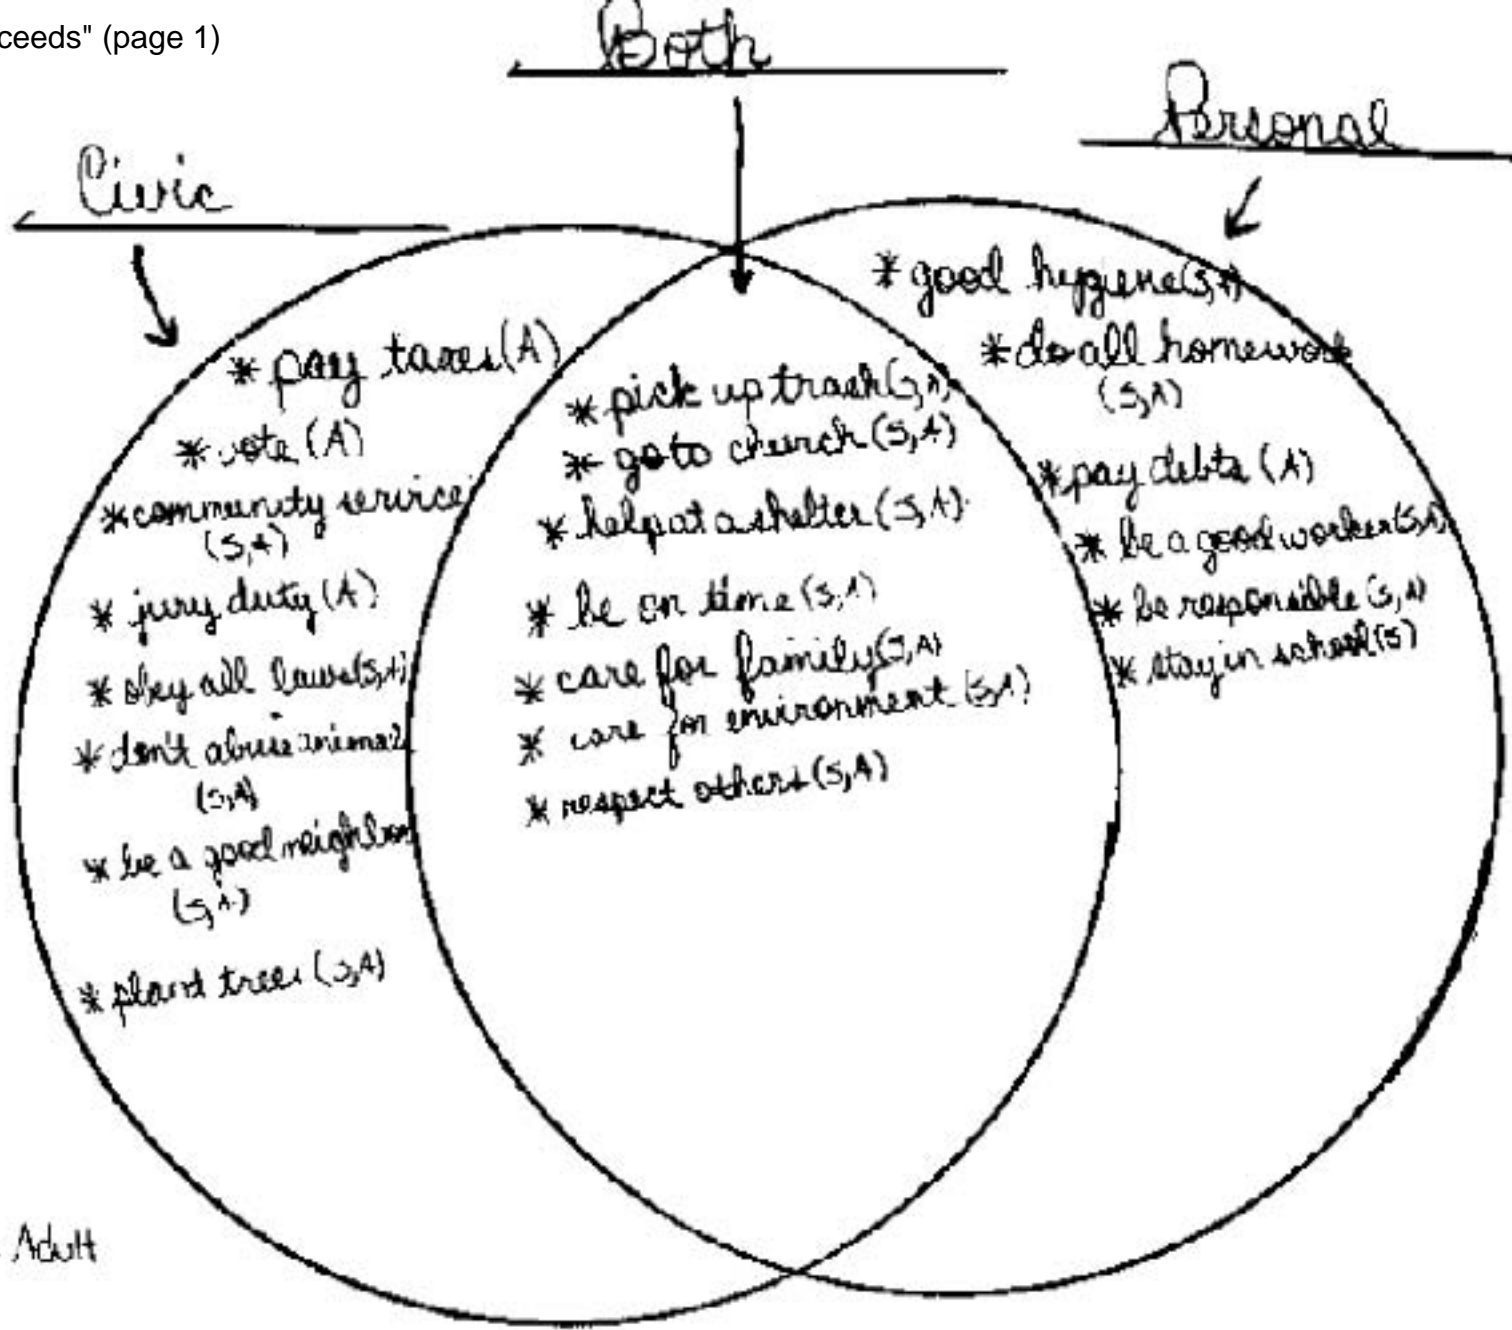 ceeds" (page 1)
Both
Personal
Civic
* pay taxes (A)
* vote (A)
* community service
(S,A)
* jury duty (A)
* obey all laws (S,A)
* don't abuse animals
(S,A)
* be a good neighbor
(S,A)
* plant trees (S,A)
* pick up trash (S,A)
* go to church (S,A)
* help at a shelter (S,A)
* be on time (S,A)
* care for family (S,A)
* care for environment (S,A)
* respect others (S,A)
* good hygiene (S,A)
* do all homework
(S,A)
* pay debts (A)
* be a good worker (S,A)
* be responsible (S,A)
* stay in school (S)
Adult